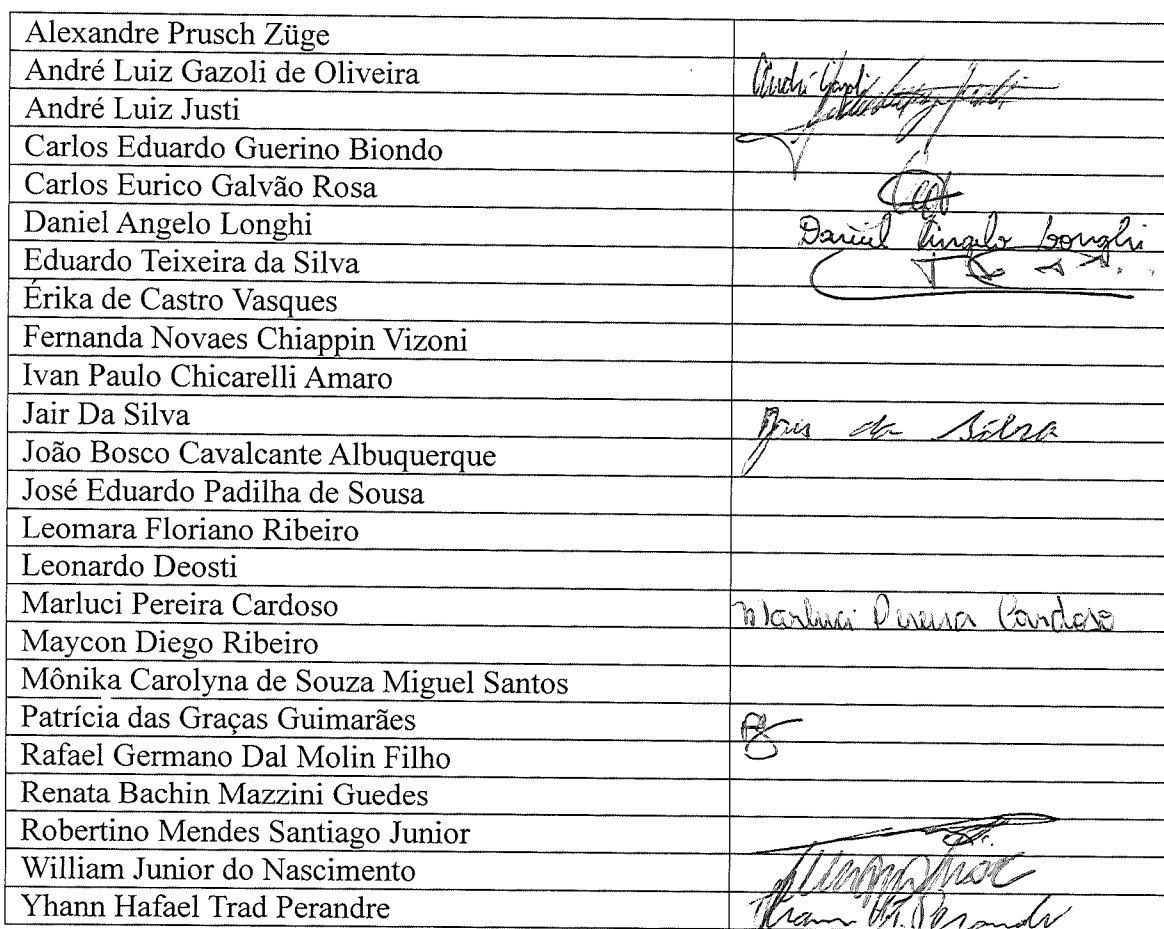 Alexandre Prusch Züge
André Luiz Gazoli de Oliveira André Gazoli
André Luiz Justi
Carlos Eduardo Guerino Biondo
Carlos Eurico Galvão Rosa
Daniel Angelo Longhi Daniel Angelo Longhi
Eduardo Teixeira da Silva
Érika de Castro Vasques
Fernanda Novaes Chiappin Vizoni
Ivan Paulo Chicarelli Amaro
Jair Da Silva da Silva
João Bosco Cavalcante Albuquerque
José Eduardo Padilha de Sousa
Leomara Floriano Ribeiro
Leonardo Deosti
Marluci Pereira Cardoso Marluci Pereira Cardoso
Maycon Diego Ribeiro
Mônika Carolyna de Souza Miguel Santos
Patrícia das Graças Guimarães
Rafael Germano Dal Molin Filho
Renata Bachin Mazzini Guedes
Robertino Mendes Santiago Junior
William Junior do Nascimento
Yhann Hafael Trad Perandre